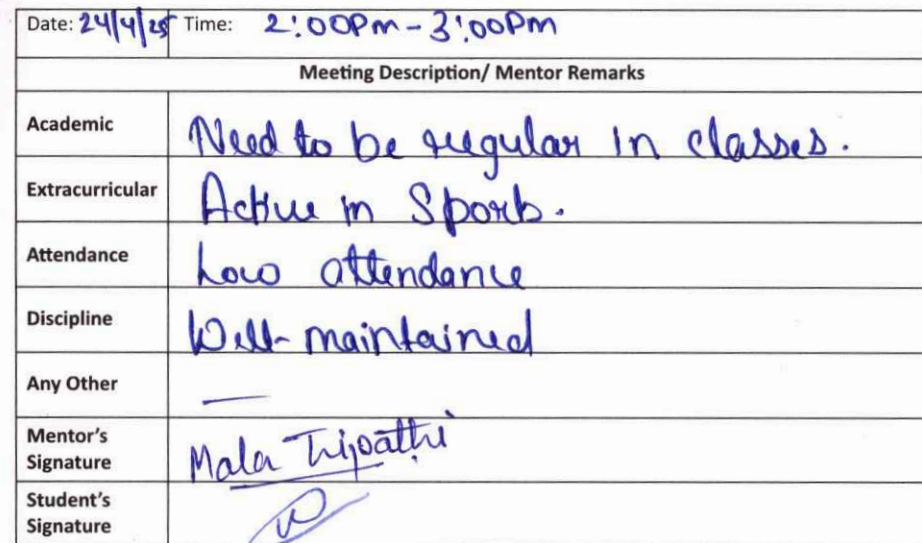 Date: 24/4/25 Time: 2:00Pm - 3:00Pm
Meeting Description/ Mentor Remarks
Academic Need to be regular in classes.
Extracurricular Active in Sports.
Attendance Low attendance
Discipline Well-maintained
Any Other —
Mentor's
Signature Mala Tripathi
Student's
Signature